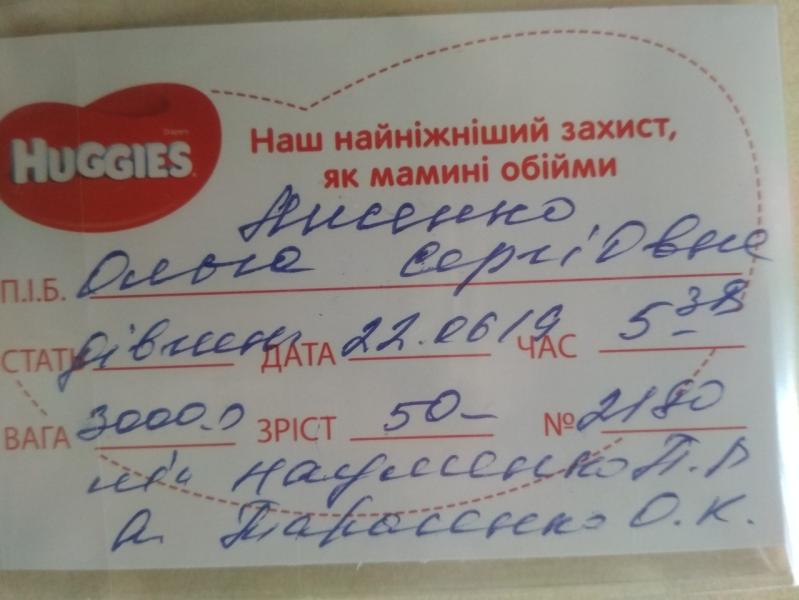 HUGGIES
Наш найніжніший захист,
як мамині обійми
Лисенко
П.І.Б. Ольга Сергіївна
СТАТЬ дівчин ДАТА 22.06 19 ЧАС 5 38
ВАГА 3000.0 ЗРІСТ 50- № 2180
Науменко П.В
А. Тарасенко О.К.